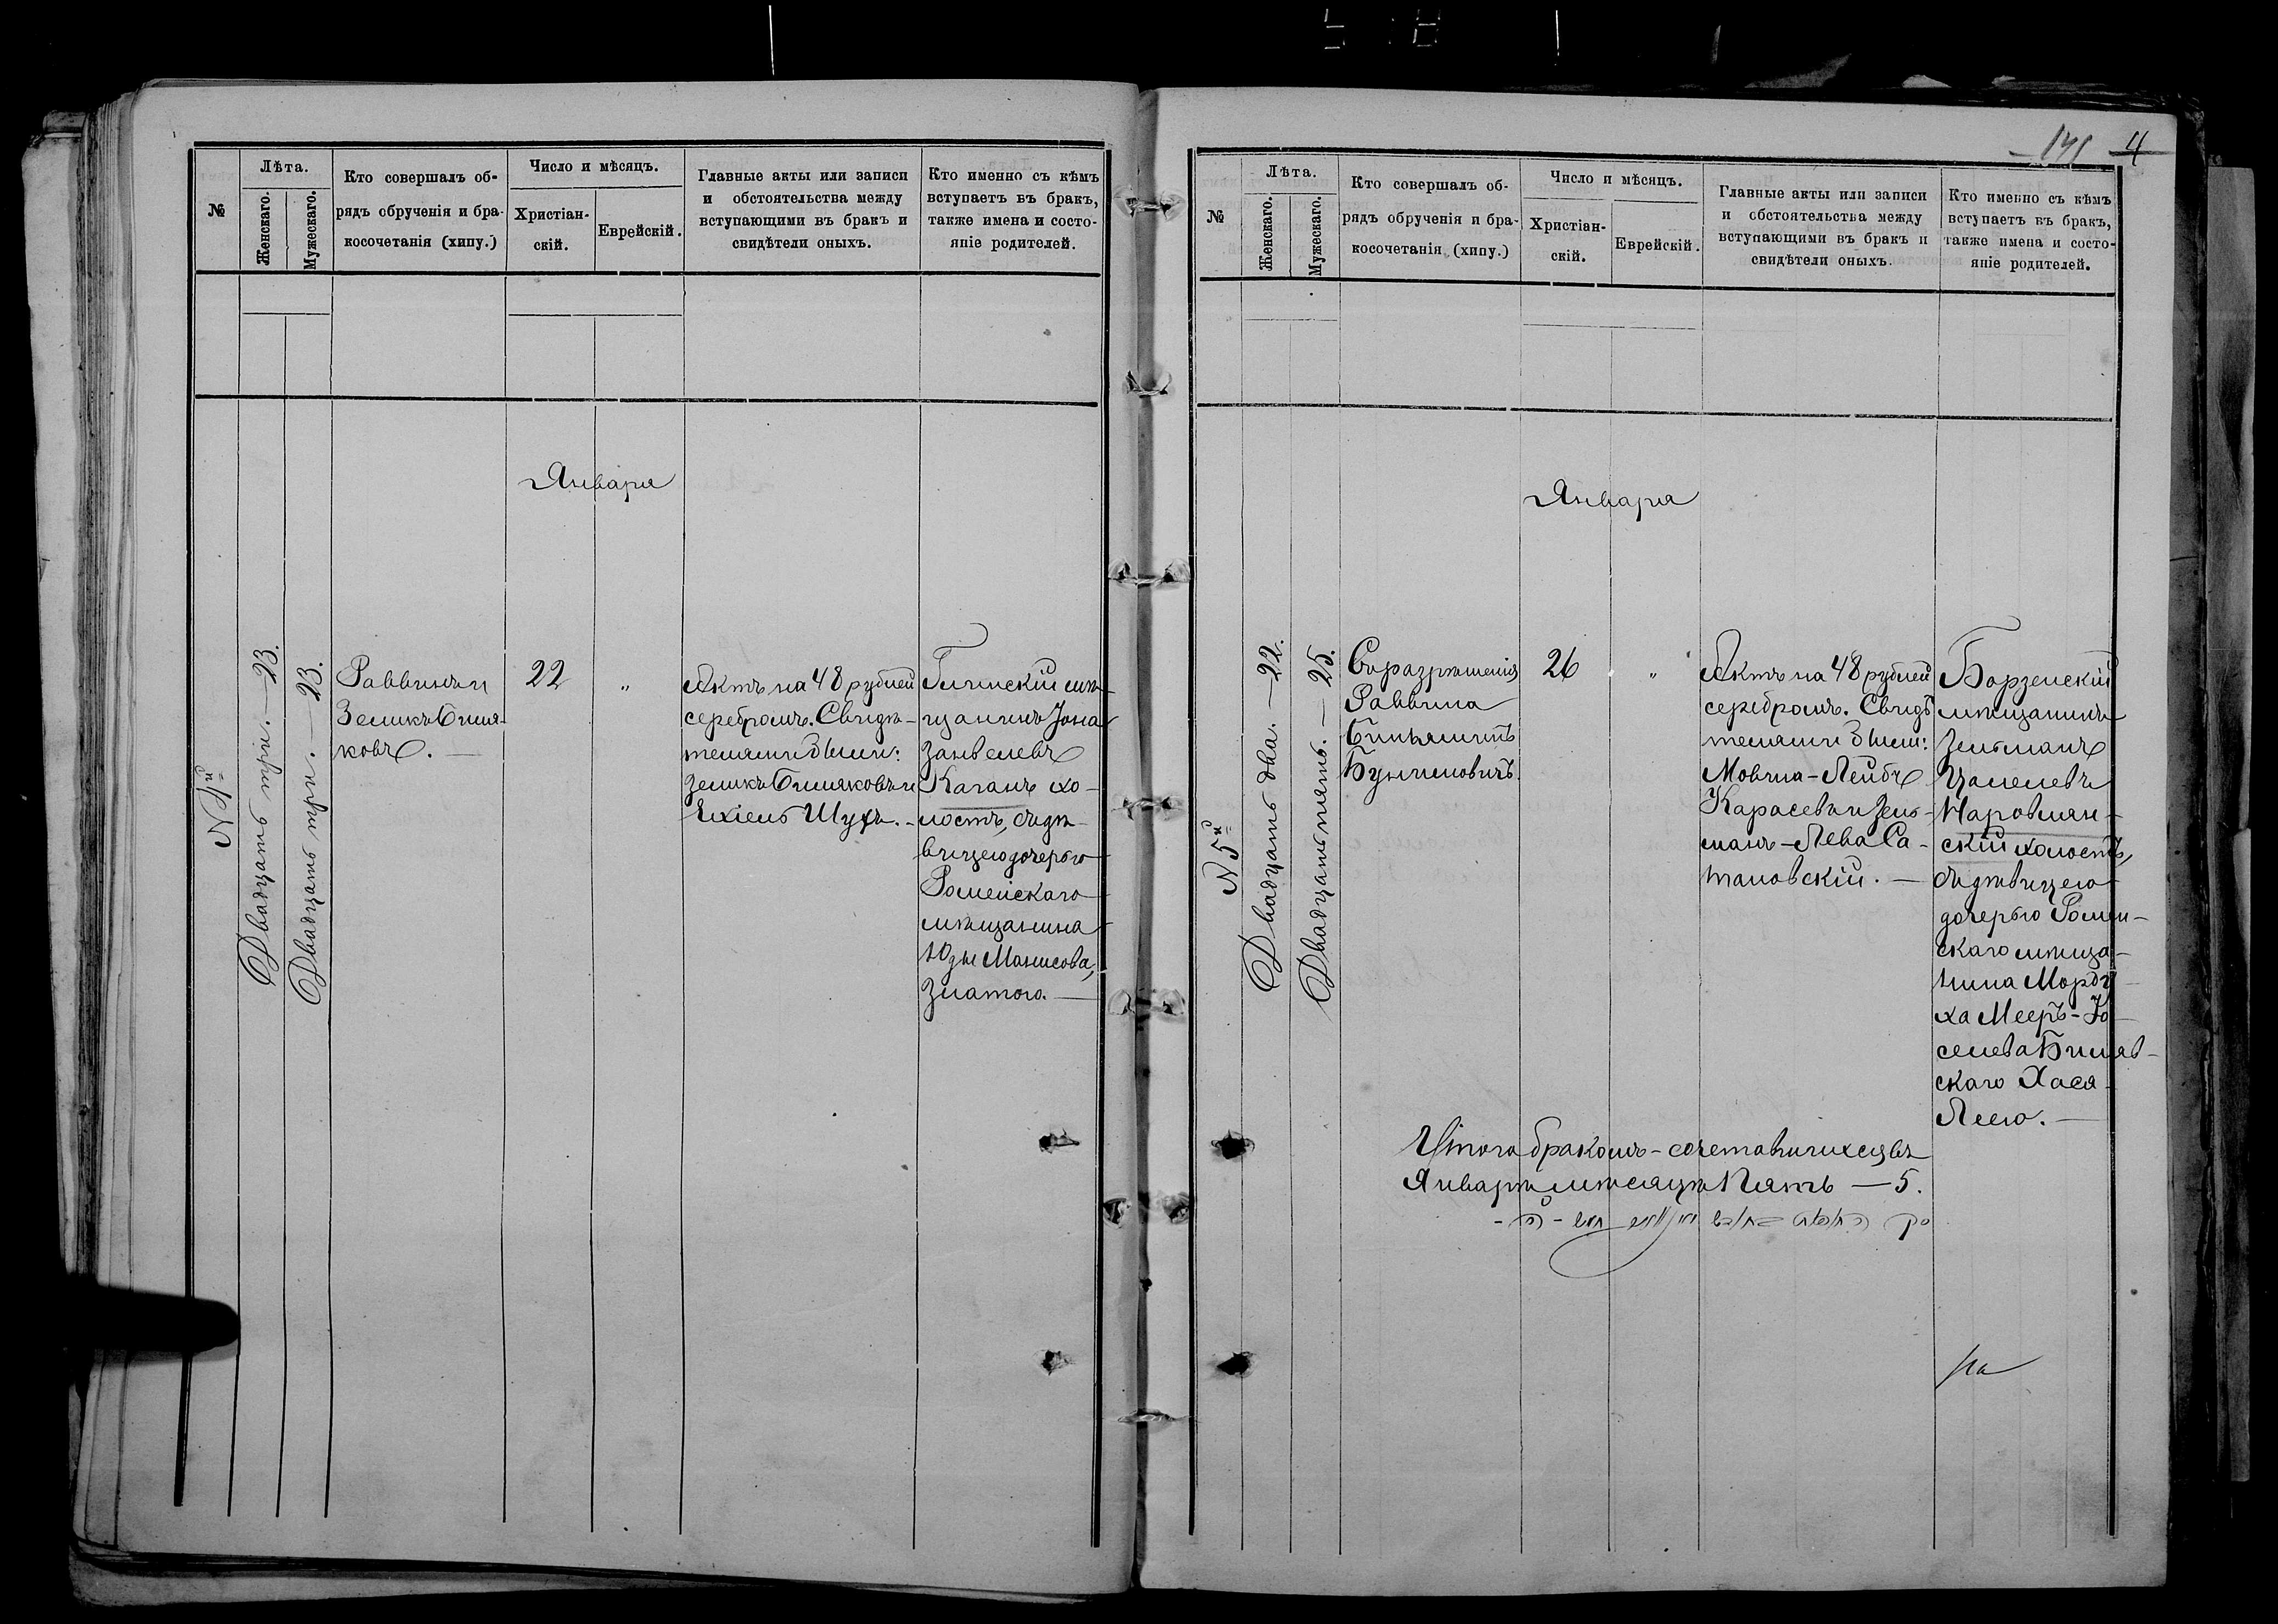 №
Лѣта.
Женскаго.
Мужескаго.
Кто совершалъ об-
рядъ обрученія и бра-
косочетанія (хипу.)
Число и мѣсяцъ.
Христіан-
скій.
Еврейскій.
Главные акты или записи
и обстоятельства между
вступающими въ бракъ и
свидѣтели оныхъ.
Кто именно съ кѣмъ
вступаетъ въ бракъ,
также имена и состо-
яніе родителей.
Января
№ 4й
Двадцать три. — 23.
Двадцать три. — 23.
Раввинъ и
Зеликъ
ковъ. —
22
„
Актъ на 48 рублей
серебромъ. Свидѣ-
телями были:
Зеликъ
Ихіель Шухъ. —
мѣ-
щанинъ Іона
Занвелевъ
Каганъ хо-
лостъ, съ дѣ-
вицею дочерью
Роменскаго
мѣщанина
Юды Манисова,
Златою. —
141 4
№
Лѣта.
Женскаго.
Мужескаго.
Кто совершалъ об-
рядъ обрученія и бра-
косочетанія (хипу.)
Число и мѣсяцъ.
Христіан-
скій.
Еврейскій.
Главные акты или записи
и обстоятельства между
вступающими въ бракъ и
свидѣтели оныхъ.
Кто именно съ кѣмъ
вступаетъ въ бракъ,
также имена и состо-
яніе родителей.
Января
№ 5й
Двадцать два. — 22.
Двадцать пять. — 25.
Съ разрѣшенія
Раввина
Бунимовичъ.
26
„
Актъ на 48 рублей
серебромъ. Свидѣ
телями были:
Мовша-Лейбъ
Карасевъ и Зель-
манъ-Лева Са-
тановскій. —
Борзенскій
мѣщанинъ
Зельманъ
Цалелевъ
Наровлян-
скій холостъ,
съ дѣвицею
дочерью Ромен-
скаго мѣща-
нина Морду
ха Мееръ-Іо-
селева Биляв-
скаго Хася-
Леею. —
Итого бракомъ-сочетавшихся въ
Январѣ мѣсяцѣ Пять — 5.